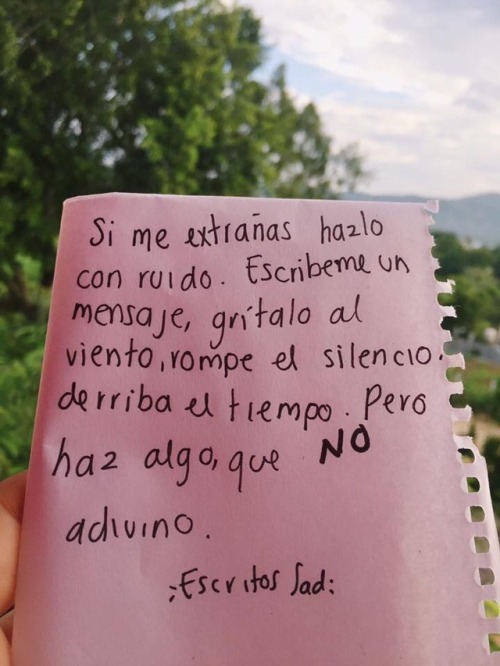 Si me extrañas hazlo
con ruido. Escribeme un
mensaje, grítalo al
viento, rompe el silencio.
derriba el tiempo. Pero
haz algo, que NO
adivino.
;Escritos Sad: